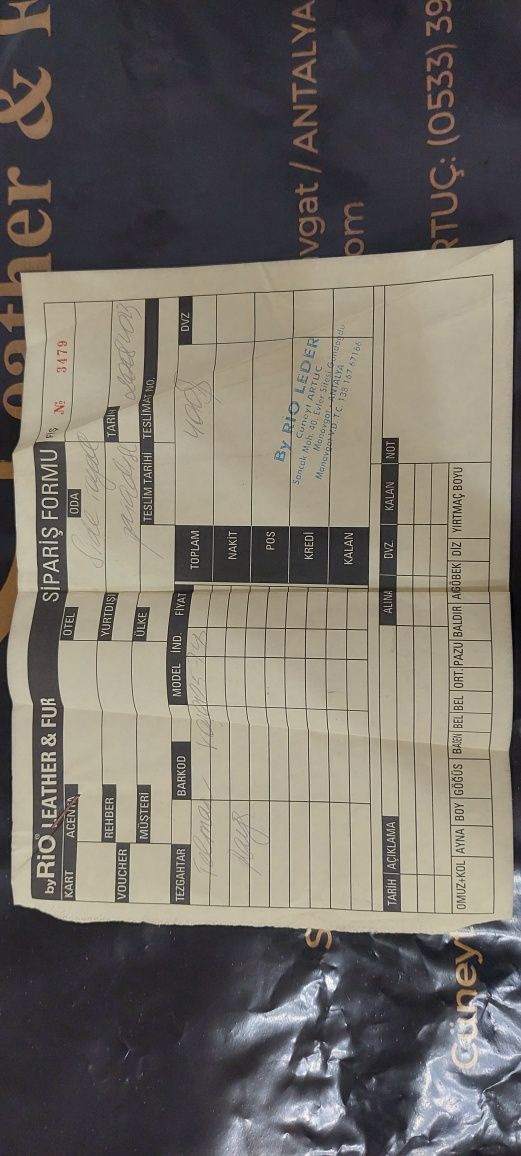 by RiO® LEATHER & FUR SİPARİŞ FORMU FİŞ № 3479
KART ACENTA OTEL ODA
REHBER YURTDIŞI TARİH
VOUCHER MÜŞTERİ ÜLKE TESLİM TARİHİ TESLİMAT NO.
TEZGAHTAR BARKOD MODEL İND. FİYAT TOPLAM DVZ
NAKİT
POS
KREDİ
KALAN
By RİO LEDER
Cüneyt ARTUÇ
Sancak Mah. 40. Evler Sitesi Gündoğdu
Manavgat - ANTALYA
Manavgat V.D. T.C. 138 167 67166
TARİH AÇIKLAMA ALINA DVZ. KALAN NOT
OMUZ+KOL AYNA BOY GÖĞÜS BASEN BEL BEL ORT. PAZU BALDIR AGÖBEK DİZ YIRTMAÇ BOYU
eather &
vgat / ANTALYA
om
RTUÇ: (0533) 39
Güney